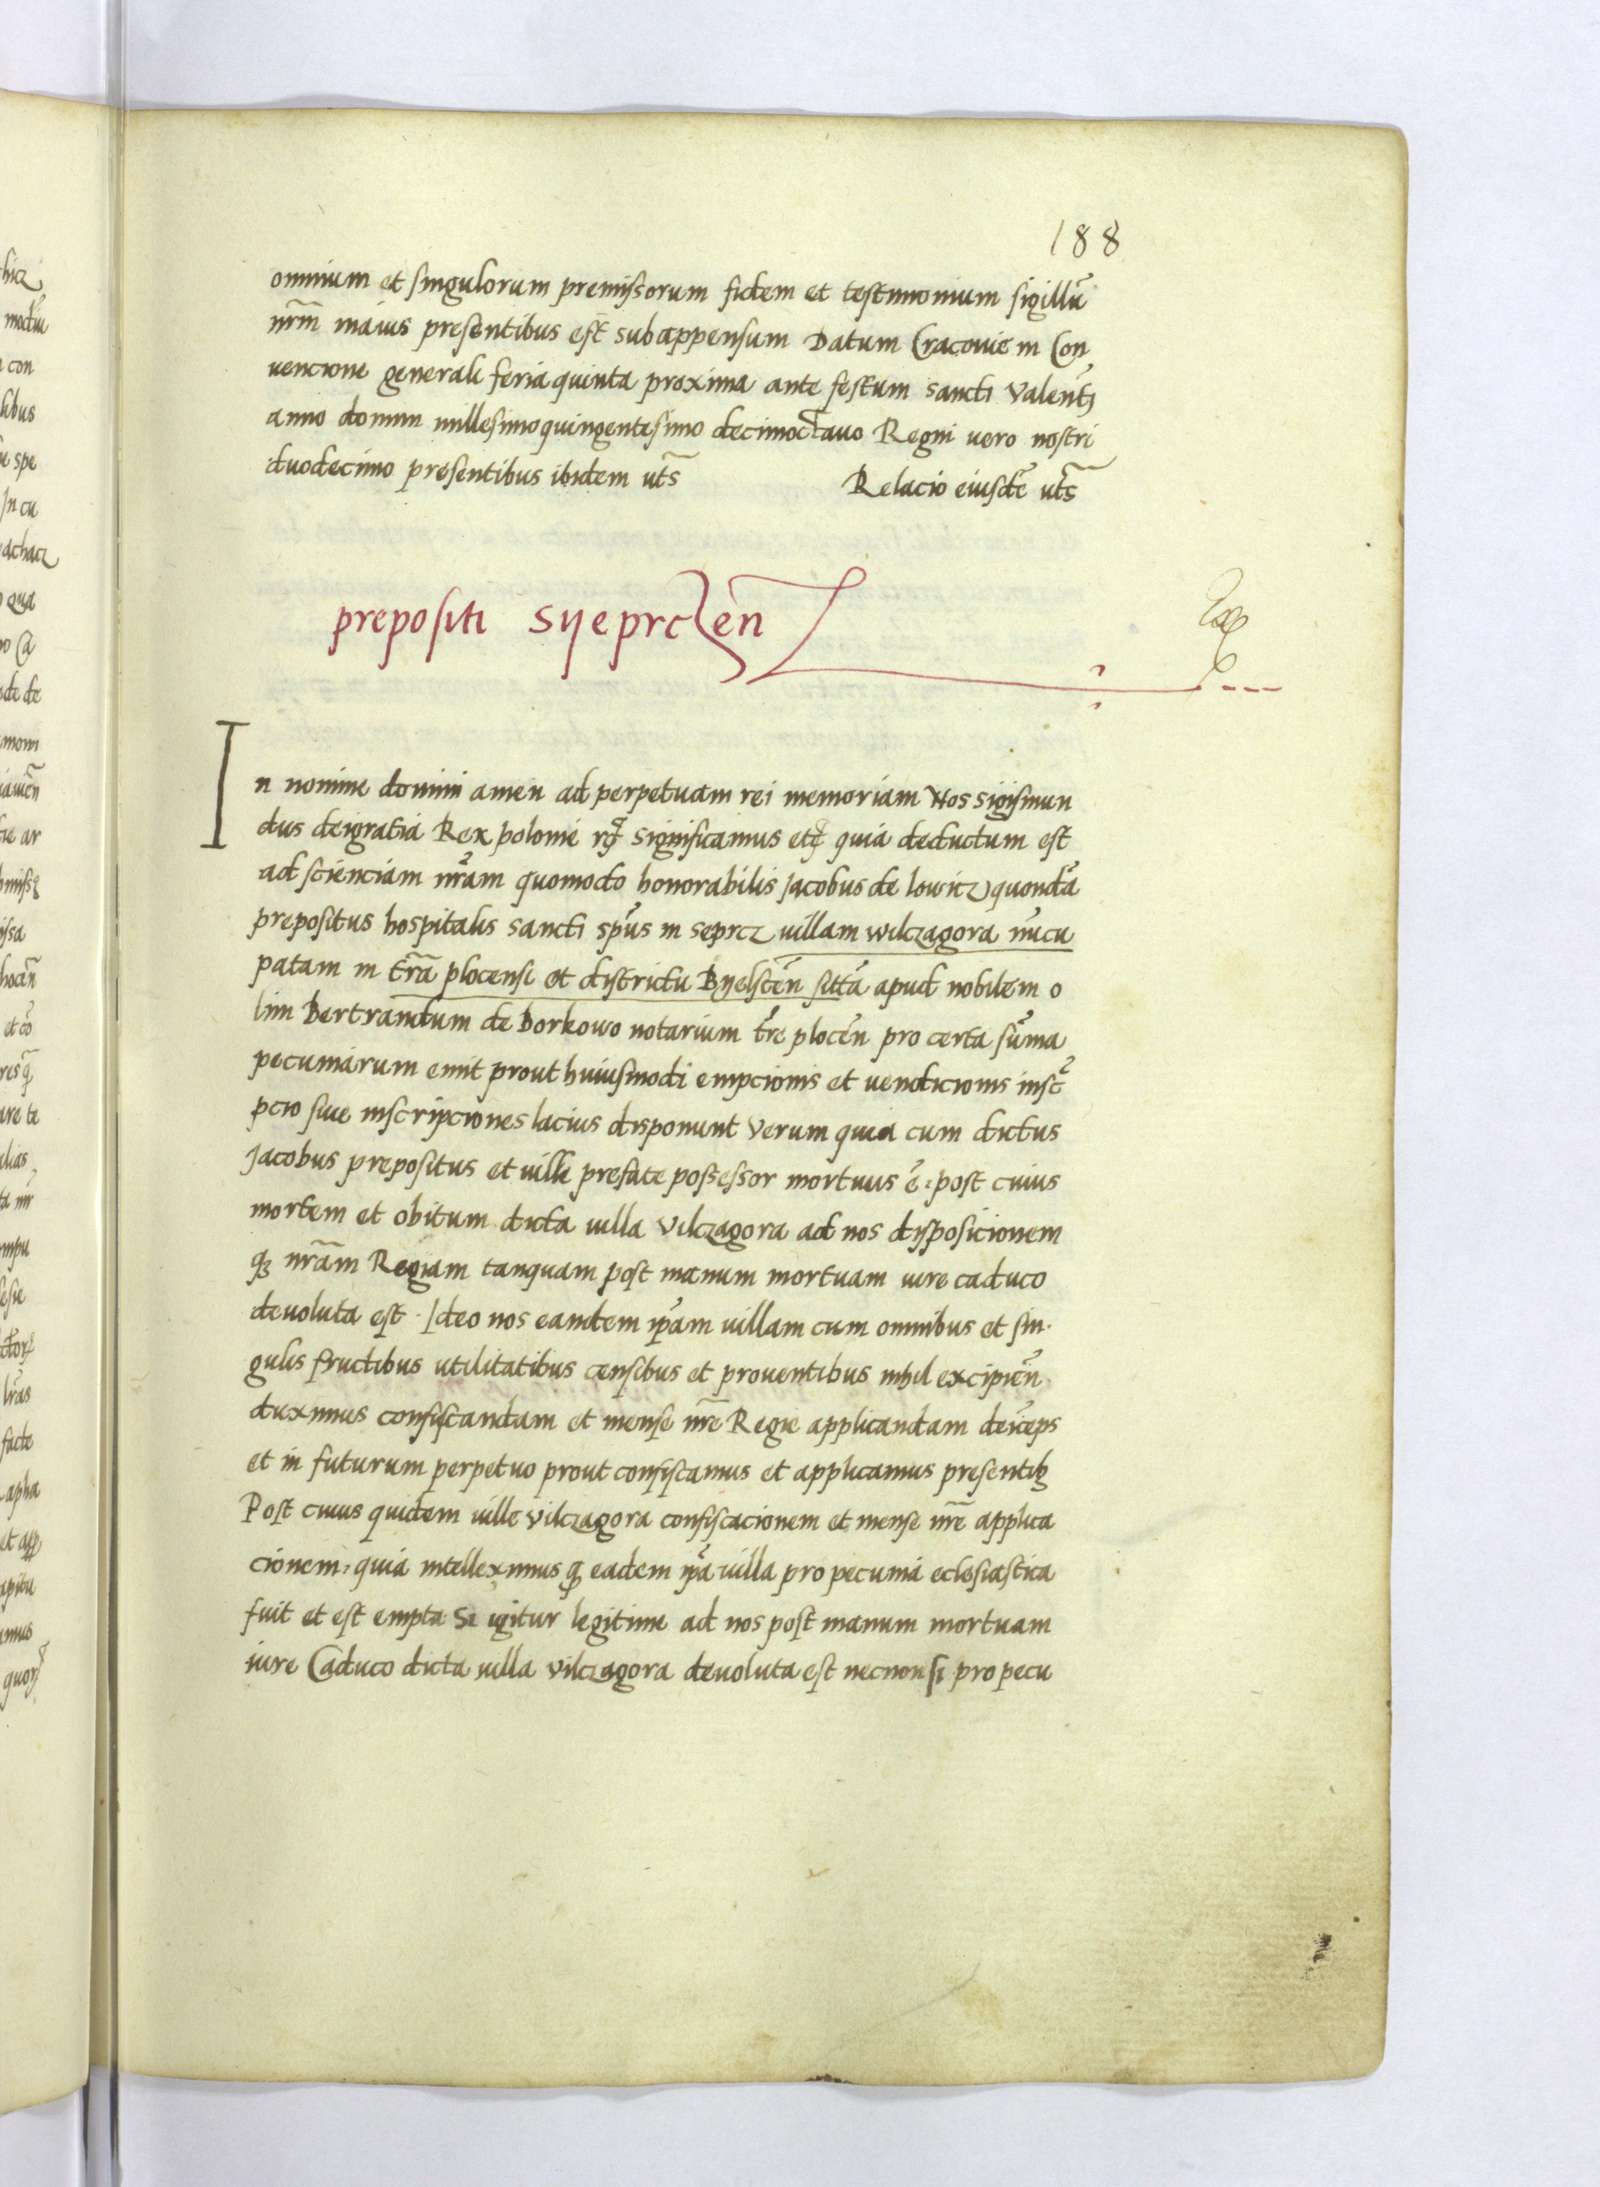 188
omnium et singulorum premissorum fidem et testimonium sigillū
nr̄m maius presentibus est subappensum Datum Cracovie in Con
vencione generali feria quinta proxima ante festum sancti Valentȷ
anno domini millesimoquingentesimo decimoctavo Regni vero nostri
duodecimo presentibus ibidem ut̄s
Relacio eiusdē ut̄s
prepositi syeprczēn
In nomine domini amen ad perpetuam rei memoriam Nos sigismun
dus dei gratia Rex polonie ꝛcꝫ significamus etcꝫ quia deductum est
ad scienciam nr̄am quomodo honorabilis Jacobus de lowicz quondā
prepositus hospitalis sancti sp̄us in seprcz villam wilczagora nūcu
patam in tr̄a plocensi et districtu Byelscēn sitā apud nobilem o
lim Bertrandum de Borkowo notarium tr̄e plocēn pro certa sūma
pecuniarum emit prout huiusmodi empcionis et vendicionis insc̄
pcio sive inscripciones lacius disponunt Verum quia cum dictus
Jacobus prepositus et ville prefate possessor mortuus ē post cuius
mortem et obitum dicta villa Vilczagora ad nos disposicionem
qꝫ nr̄am Regiam tanquam post manum mortuam iure caduco
devoluta est Ideo nos eandem ip̄am villam cum omnibus et sin
gulis fructibus utilitatibus censibus et proventibus nihil excipiēn
duximus confiscandam et mense nr̄e Regie applicandam deīceps
et in futurum perpetuo prout confiscamus et applicamus presentibꝫ
Post cuius quidem ville vilczagora confiscacionem et mense nr̄e applica
cionem, quia intelleximus ꝙ eadem ip̄a villa pro pecunia eclesiastica
fuit et est empta Si igitur legitime ad nos post manum mortuam
iure Caduco dicta villa vilczagora devoluta est necnon si pro pecu